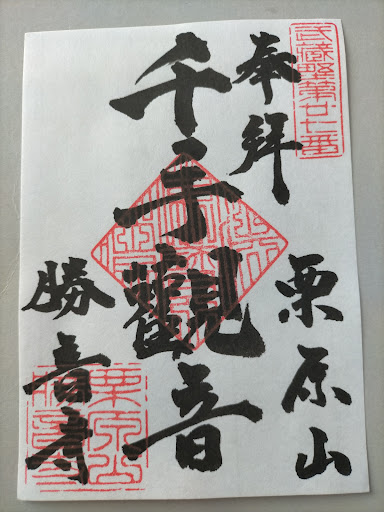 武蔵野第廿七番
奉拝
栗原山
千手觀音
勝音寺
栗原山